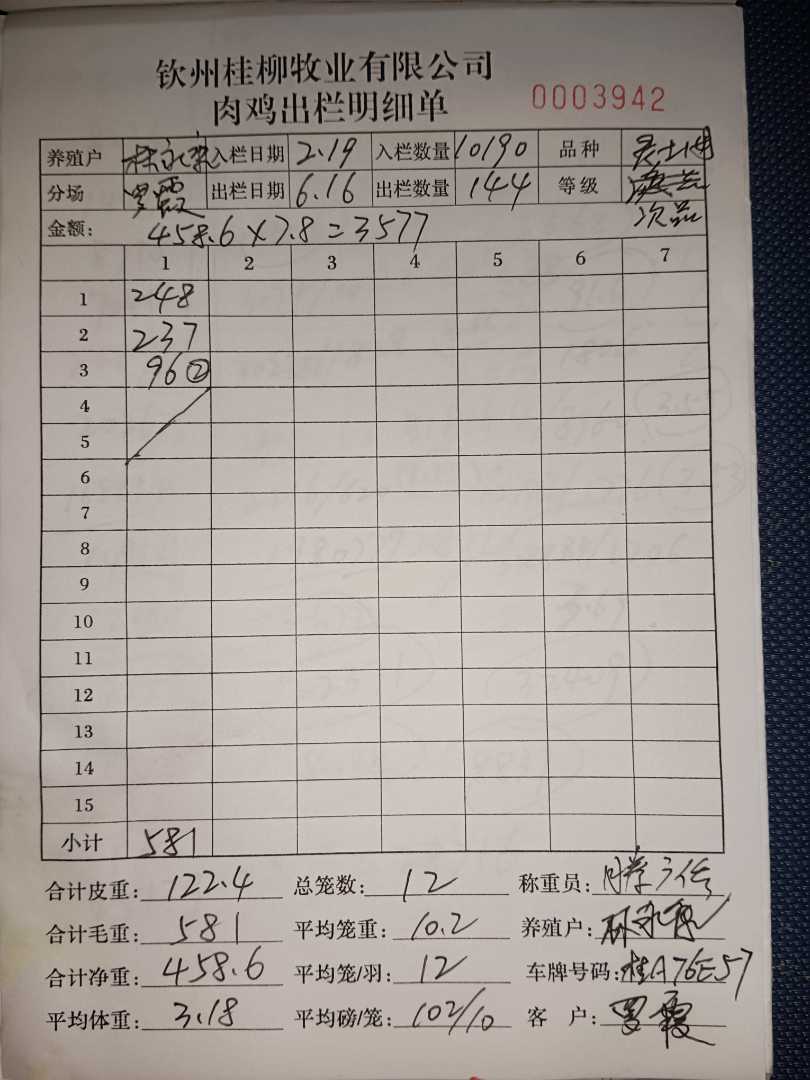 钦州桂柳牧业有限公司
肉鸡出栏明细单 0003942
养殖户 林永 入栏日期 2.19 入栏数量 10190 品种
分场 罗霞 出栏日期 6.16 出栏数量 144 等级
次品
金额: 458.6×7.8=3577
1 2 3 4 5 6 7
1 248
2 237
3 96②
4
5
6
7
8
9
10
11
12
13
14
15
小计 581
合计皮重: 122.4 总笼数: 12 称重员:
合计毛重: 581 平均笼重: 10.2 养殖户: 林永
合计净重: 458.6 平均笼/羽: 12 车牌号码: 桂A76E57
平均体重: 3.18 平均磅/笼: 102/10 客 户: 罗霞